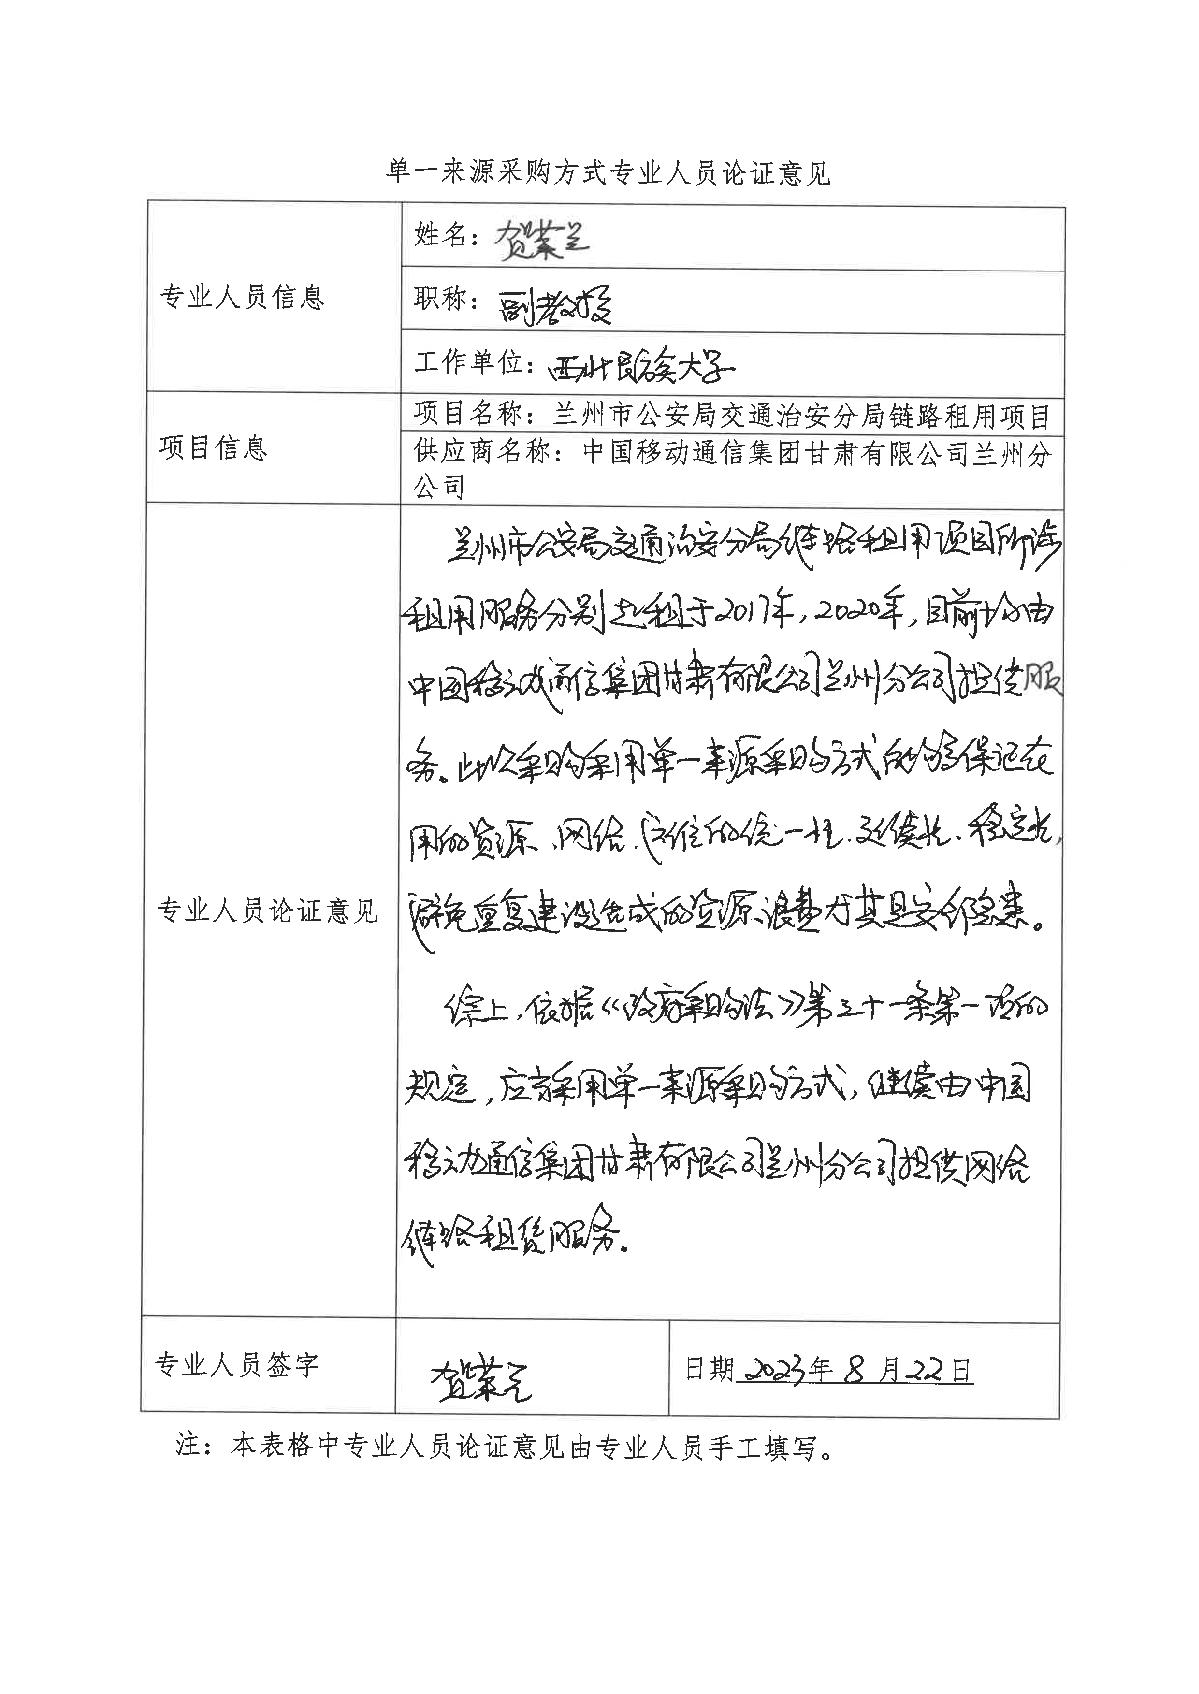 单一来源采购方式专业人员论证意见
专业人员信息
姓名：贺紫兰
职称：副教授
工作单位：西北民族大学
项目信息
项目名称：兰州市公安局交通治安分局链路租用项目
供应商名称：中国移动通信集团甘肃有限公司兰州分
公司
专业人员论证意见
兰州市公安局交通治安分局链路租用项目所涉
租用服务分别起租于2017年，2020年，目前均由
中国移动通信集团甘肃有限公司兰州分公司提供服
务。此次采购采用单一来源采购方式能够保证在
用的资源、网络、的统一性、延续性、稳定性，
避免重复建设造成的资源浪费安全隐患。
综上，依据《政府采购法》第三十一条第一项的
规定，应采用单一来源采购方式，继续由中国
移动通信集团甘肃有限公司兰州分公司提供网络
链路租赁服务。
专业人员签字
贺紫兰
日期 2023年 8 月22日
注：本表格中专业人员论证意见由专业人员手工填写。